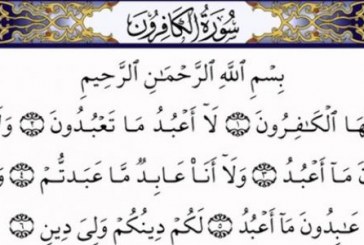 سُورَةُ الْكَافِرُونَ
بِسْمِ اللَّهِ الرَّحْمَٰنِ الرَّحِيمِ
هَا الْكَٰفِرُونَ ١ لَآ أَعْبُدُ مَا تَعْبُدُونَ ٢
مَآ أَعْبُدُ ٣ وَلَآ أَنَا۠ عَابِدٌ مَّا عَبَدتُّمْ ٤
عَٰبِدُونَ مَآ أَعْبُدُ ٥ لَكُمْ دِينُكُمْ وَلِىَ دِينِ ٦